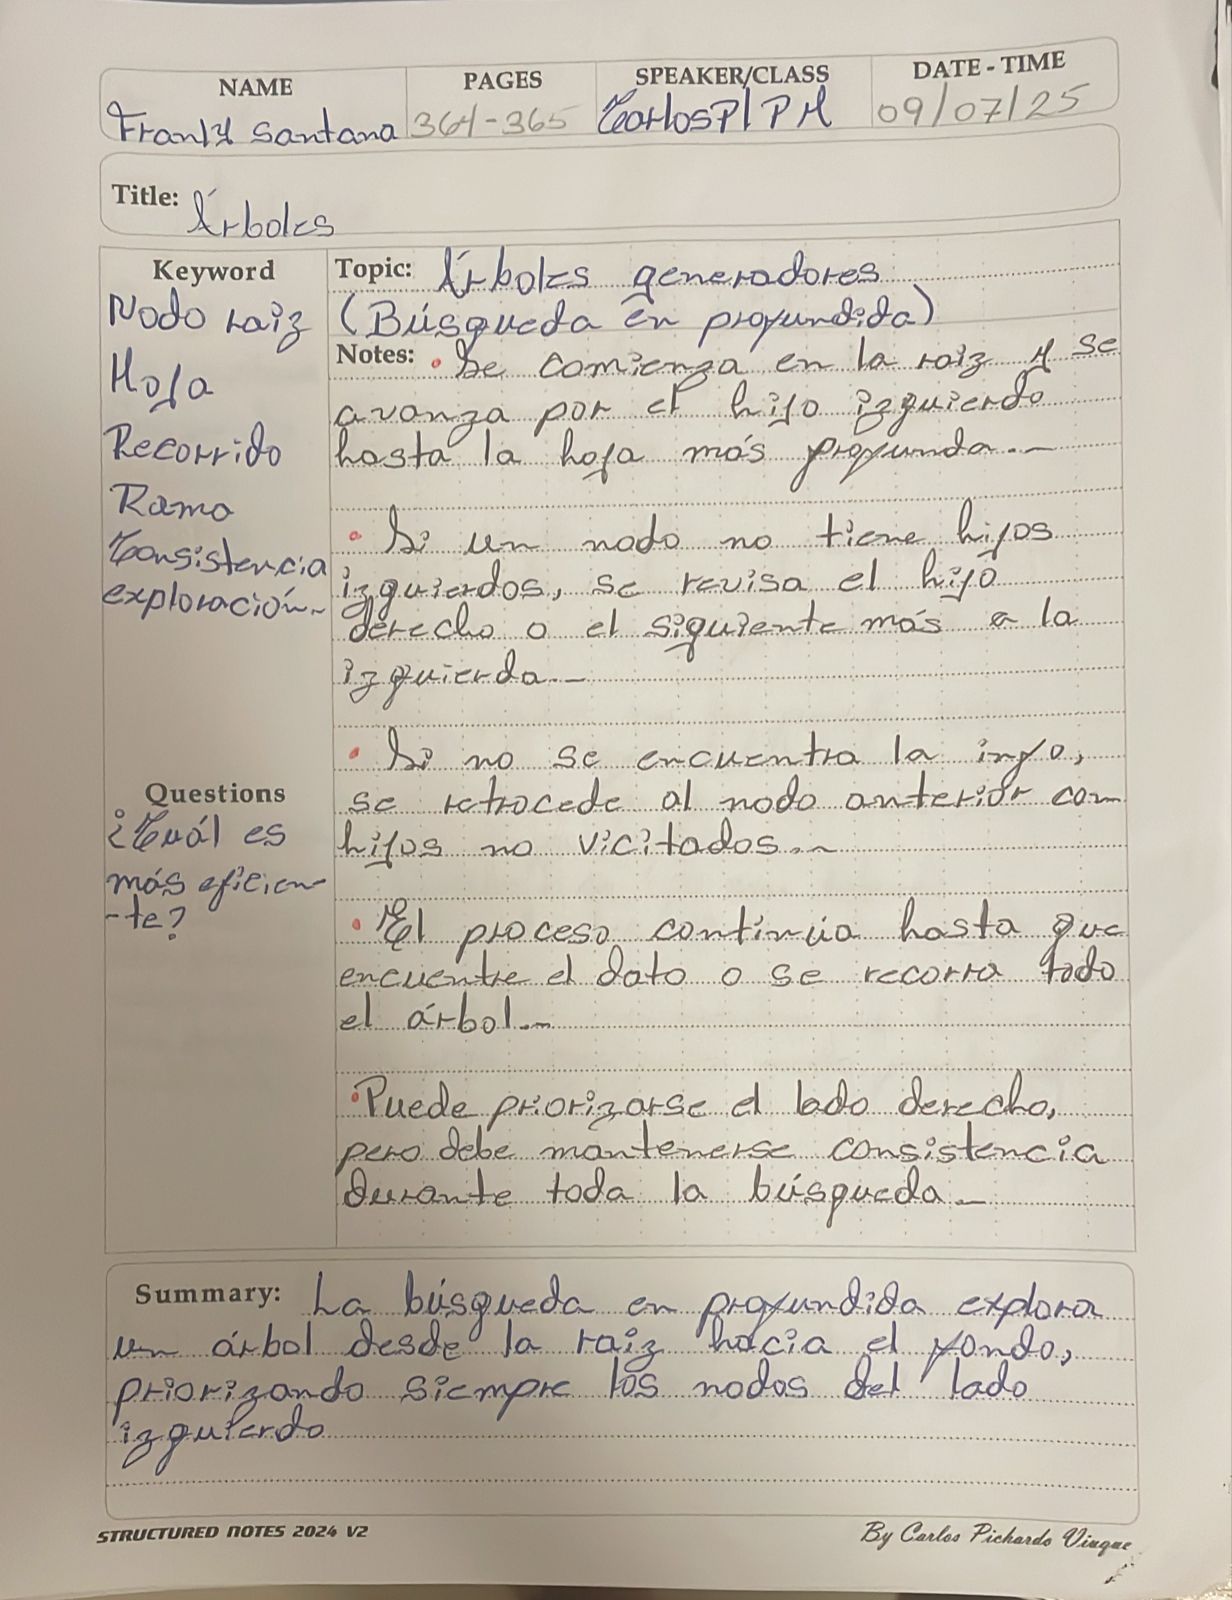 NAME PAGES SPEAKER/CLASS DATE - TIME
Franly Santana 364-365 CarlosP/PM 09/07/25
Title: Árboles
Keyword
Nodo raiz
Hoja
Recorrido
Rama
Consistencia
exploración
Topic: Árboles generadores
(Búsqueda en profundida)
Notes: • Se comienza en la raiz y se
avanza por el hijo izquierdo
hasta la hoja más profunda.
• Si un nodo no tiene hijos
izquierdos, se revisa el hijo
derecho o el siguiente más a la
izquierda.
• Si no se encuentra la info,
se retrocede al nodo anterior con
hijos no vicitados.
• El proceso continúa hasta que
encuentre el dato o se recorra todo
el árbol.
• Puede priorizarse el lado derecho,
pero debe mantenerse consistencia
durante toda la búsqueda
Questions
¿Cuál es
más eficien-
-te?
Summary: La búsqueda en profundida explora
un árbol desde la raiz hacia el fondo,
priorizando siempre los nodos del lado
izquierdo
STRUCTURED NOTES 2024 V2
By Carlos Pichardo Viuque